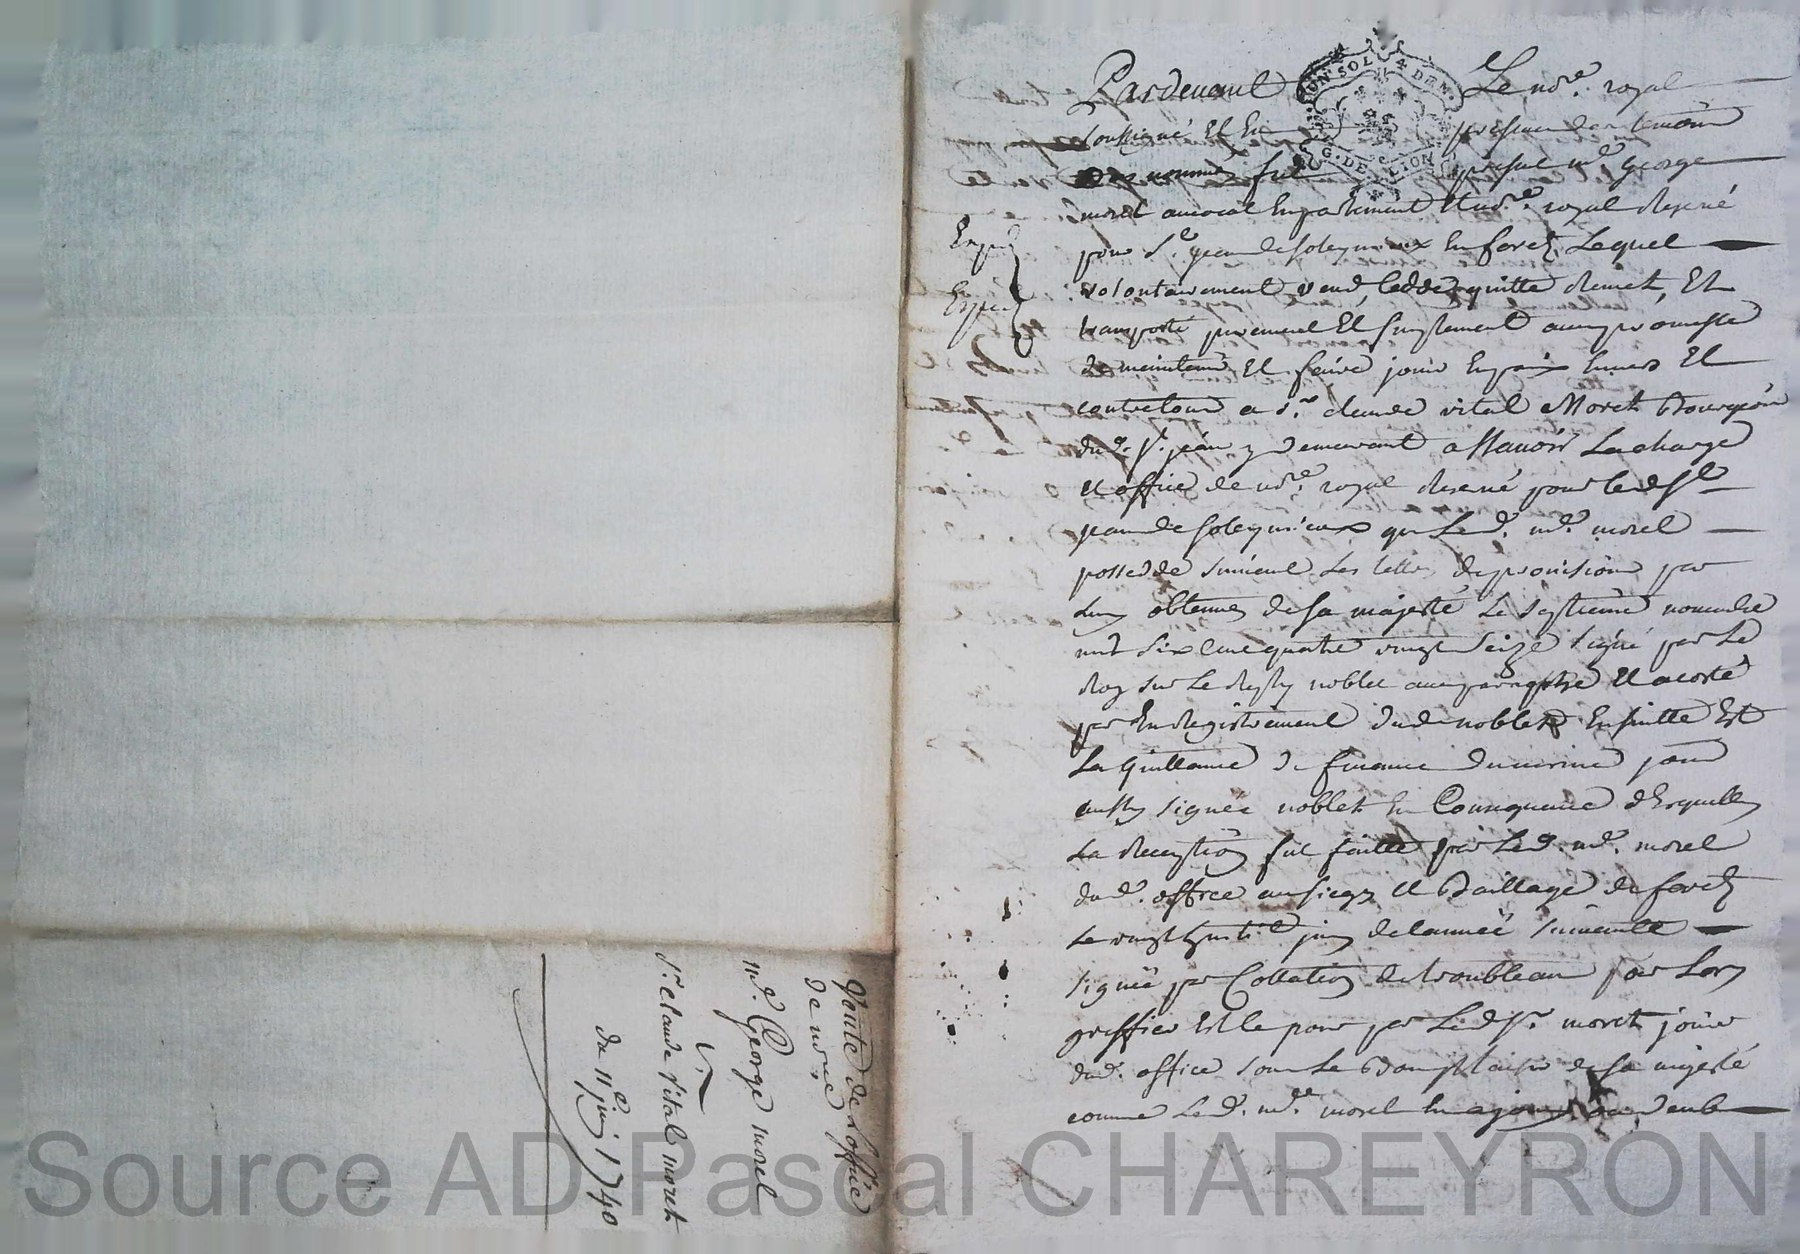 Vante de Loffice
de no.re
m.e George morel
a
s.r Claude Vital moret
du 11e juin 1740
UN SOL 4 DEN.
G. DE LION
Exped
Exped
Pardevant Le no.re royal
soussigné Et En presence des temoins
bas nommés fut presant m.e George
morel avocat En parlement Et no.re royal Reservé
pour S.t jean de soleymieux En forez Lequel
volontairement vend, cedde, quitte Remet, Et
transporte purement Et simplement avec promesse
de maintenir Et faire jouir En paix Envers Et
contre tous a s.r claude vital Moret Bourgeois
dud. S.t jean y demeurant a sçavoir La charge
Et office de no.re royal Reservé pour led. S.t
jean de soleymieux que Led. m.e morel
possedde suivant Les lettres de provision par
Luy obtenues de sa majesté Le septieme novembre
mil six cent quatre vingt seize signé par Le
Roy sur Le Reply noblet avec paraphe Et a costé
par Enregistrement dud. noblet Ensuitte Est
La quittance de finance du mesme jour
aussy signée noblet En Consequence desquelles
La Reception fut faitte par Led. m.e morel
dud. office au siege Et Baillage de forez
Le vingt huit.e juin de l'année suivante
signée par Collation de Troubleau par Lors
greffier Est le pour par Led. S.r moret jouir
dud. office sous Le Bon plaisir de sa majesté
comme Led. m.e morel En a jouy ou deub
Source AD Pascal CHAREYRON